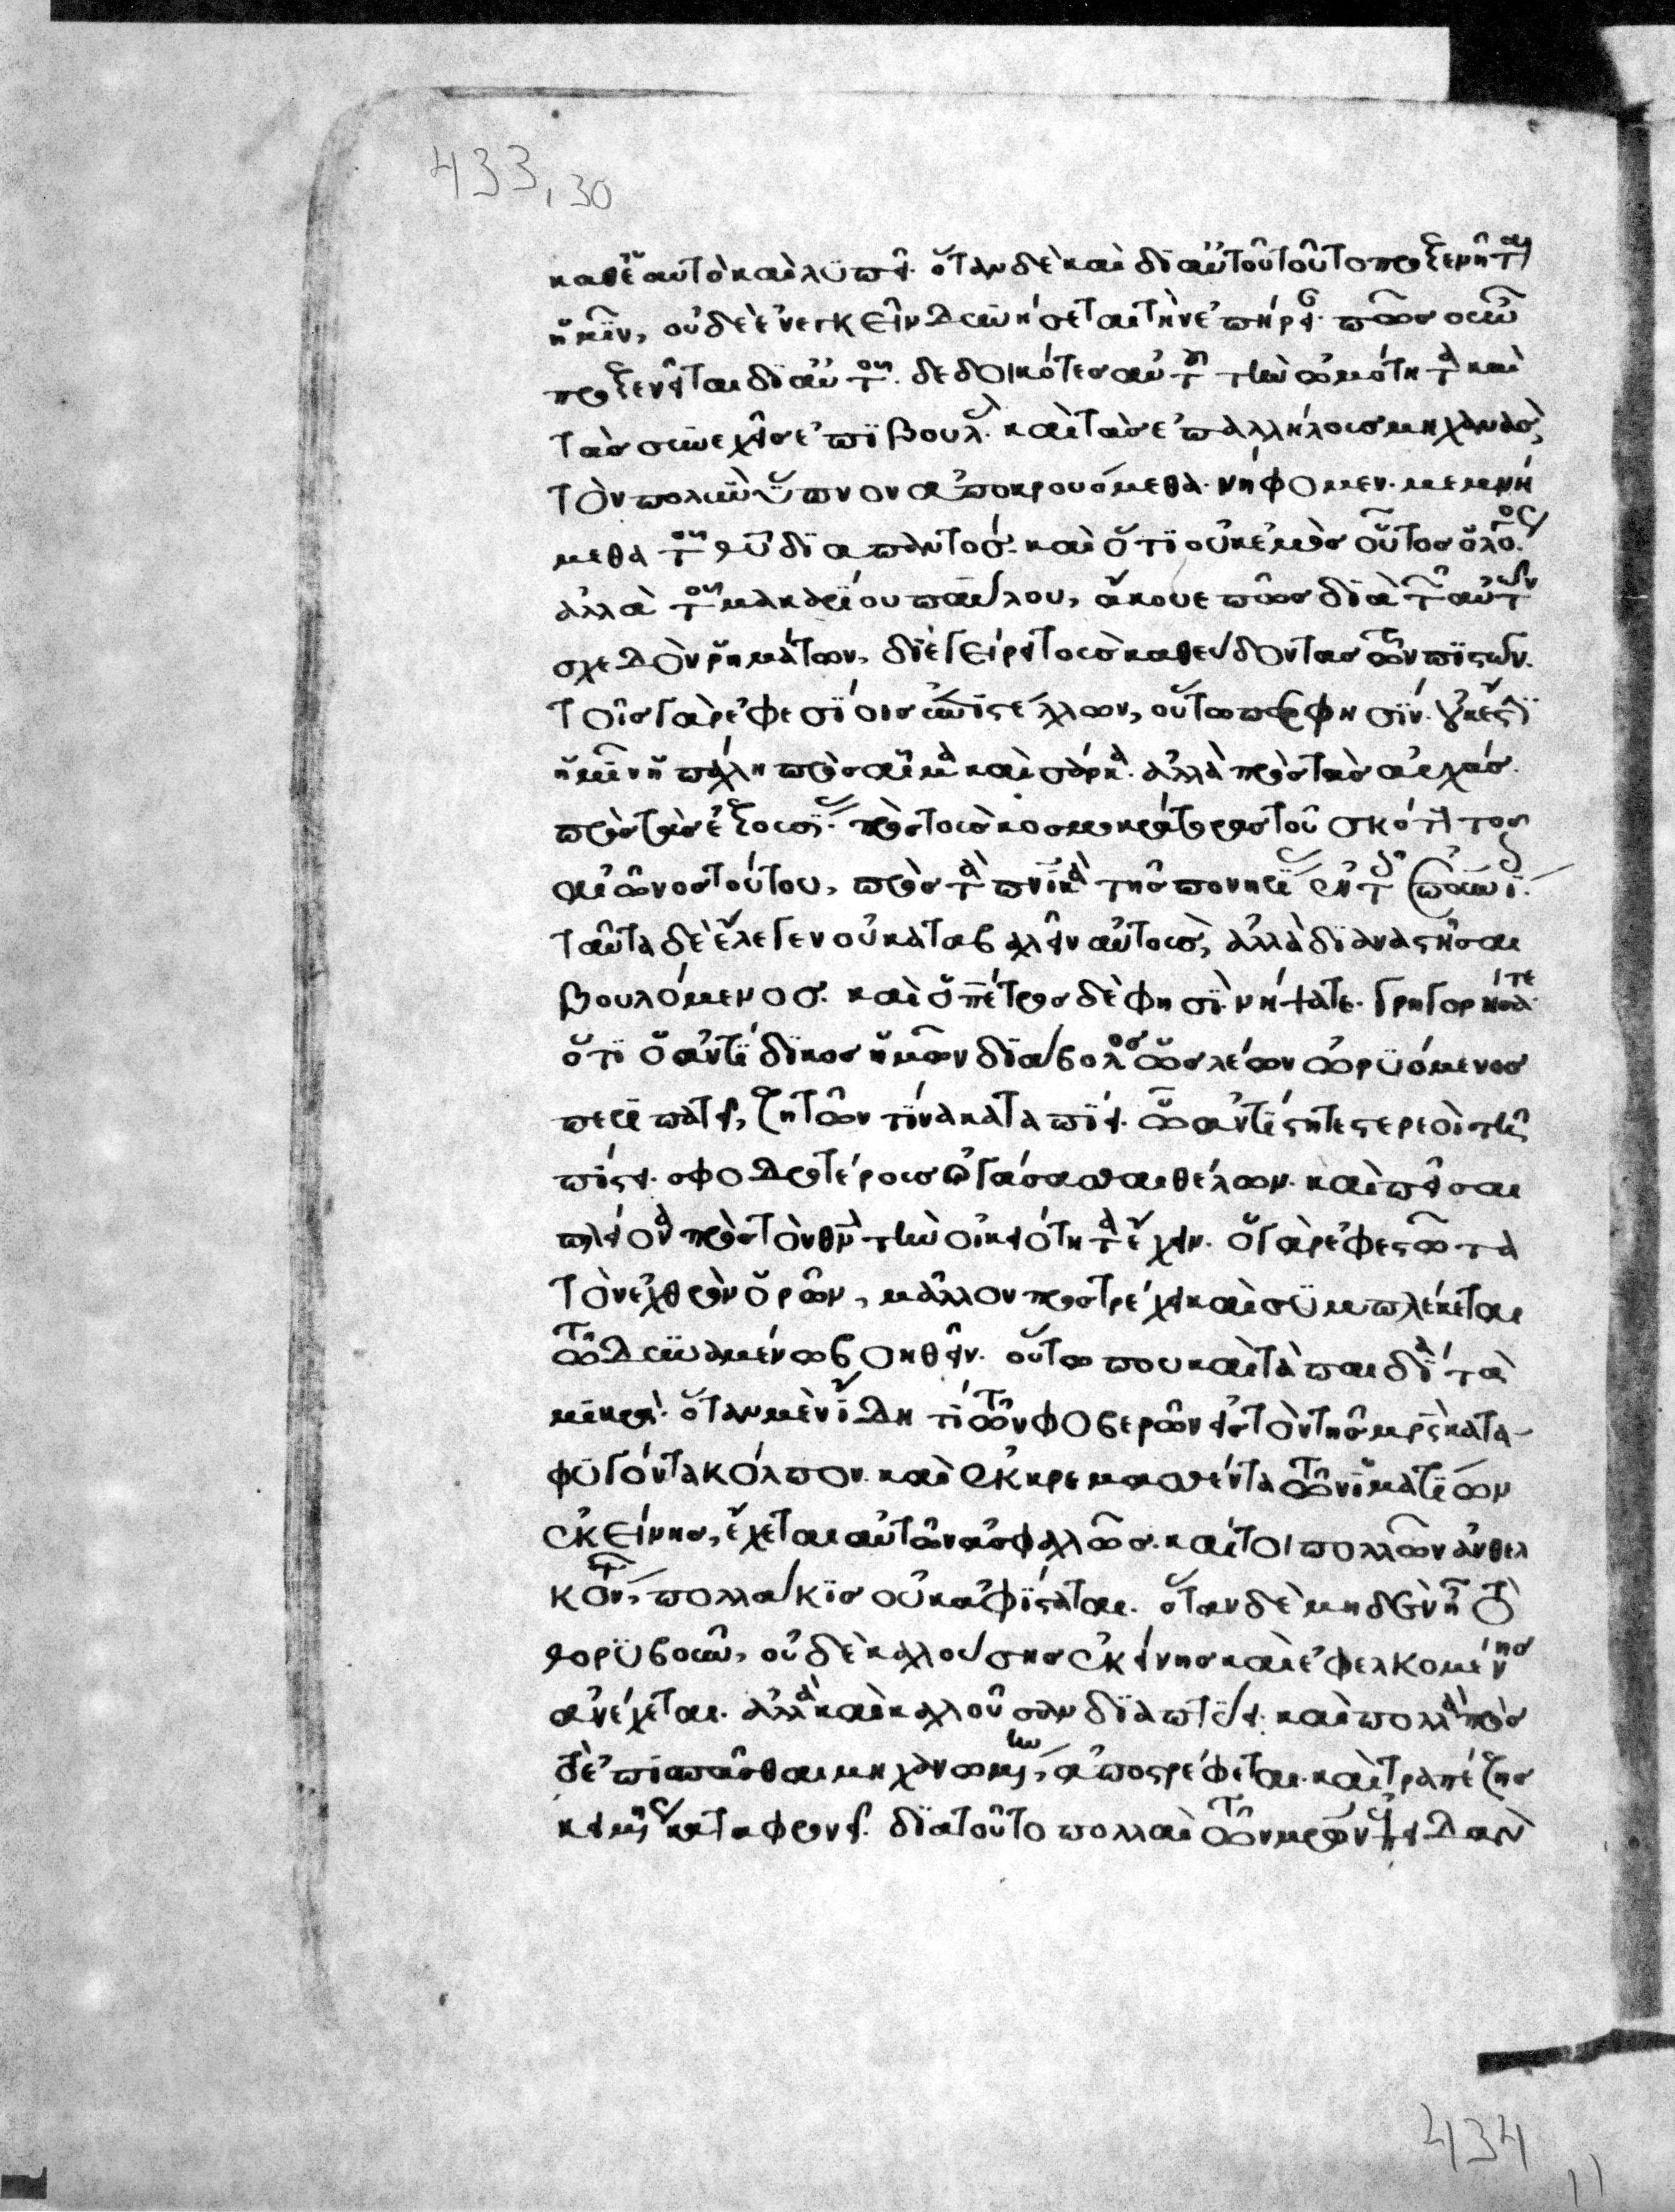 433, 30
καθ' ἑαυτὸ καὶ λυπεῖ. ὅταν δὲ καὶ δι' αὐτοῦ τοῦτο προξενῆται
ἡμῖν, οὐδὲ ἐνεγκεῖν δυνήσεται τὴν ἐπήρειαν. πῶς οὖν
προξενεῖται δι' αὐτοῦ. δεδοικότες αὐτοῦ τὴν ὠμότητα καὶ
τὰς συνεχεῖς ἐπιβουλὰς καὶ τὰς ἐπαλλήλους μηχανὰς,
τὸν πολὺν ὕπνον ἀποκρουόμεθα. νήφομεν. μεμνή
μεθα τοῦ θῦ διαπαντός. καὶ ὅτι οὐκ ἐμὸς οὗτος ὁ λόγος
ἀλλὰ τοῦ μακαρίου παύλου, ἄκουε πῶς διὰ τῶν αὐτῶν
σχεδὸν ῥημάτων, διεγείρει τοὺς καθεύδοντας τῶν πιστῶν.
τοῖς γὰρ ἐφεσίοις ἐπιστέλλων, οὕτω πώς φησίν. οὐκ ἔστιν
ἡμῖν ἡ πάλη πρὸς αἷμα καὶ σάρκα. ἀλλὰ πρὸς τὰς ἀρχάς.
πρὸς τὰς ἐξουσίας. πρὸς τοὺς κοσμοκράτορας τοῦ σκότους τοῦ
αἰῶνος τούτου, πρὸς τὰ πνικὰ τῆς πονηρίας ἐν τοῖς ἐπουνίοις.
ταῦτα δὲ ἔλεγεν οὐ καταβαλεῖν αὐτοὺς, ἀλλὰ διαναστῆσαι
βουλόμενος. καὶ ὁ πέτρος δέ φησι. νήψατε. γρηγορήσατε
ὅτι ὁ ἀντίδικος ἡμῶν διάβολος ὡς λέων ὠρυόμενος
περιπατεῖ, ζητῶν τίνα καταπίει. ᾧ ἀντίστητε στερεοὶ τῇ
πίστει. σφοδροτέρους ἐργάσασθαι θέλων. καὶ πεῖσαι
πλείονα πρὸς τὸν θν τὴν οἰκειότητα ἔχειν. ὁ γὰρ ἐφεστῶτα
τὸν ἐχθρὸν ὁρῶν, μᾶλλον προστρέχει καὶ συμπλέκεται
τῷ δυναμένῳ βοηθεῖν. οὕτω που καὶ τὰ παιδία τὰ
μικρά. ὅταν μὲν ἴδῃ τί τῶν φοβερῶν εἰς τὸν τῆς μρς κατα-
φυγόντα κόλπον. καὶ ἐκκρεμασθέντα τῶν ἱματίων
ἐκείνης, ἔχεται αὐτῶν ἀσφαλῶς. καίτοι πολλῶν ἀνθελ
κόντων, πολλάκις οὐκ ἀφίσταται. ὅταν δὲ μηδὲν ᾖ τὸ
θορυβοῦν, οὐδὲ καλούσης ἐκείνης καὶ ἐφελκομένης
ἀνέχεται. ἀλλὰ καὶ καλοῦσαν διαπτύει. καὶ πολλὰ πρὸς
τὸ ἐπισπᾶσθαι μηχανωμένην, ἀποστρέφεται. καὶ τραπέζης
κειμένης καταφρονεῖ. διατοῦτο πολλαὶ τῶν μρων ἐπειδὰν
434